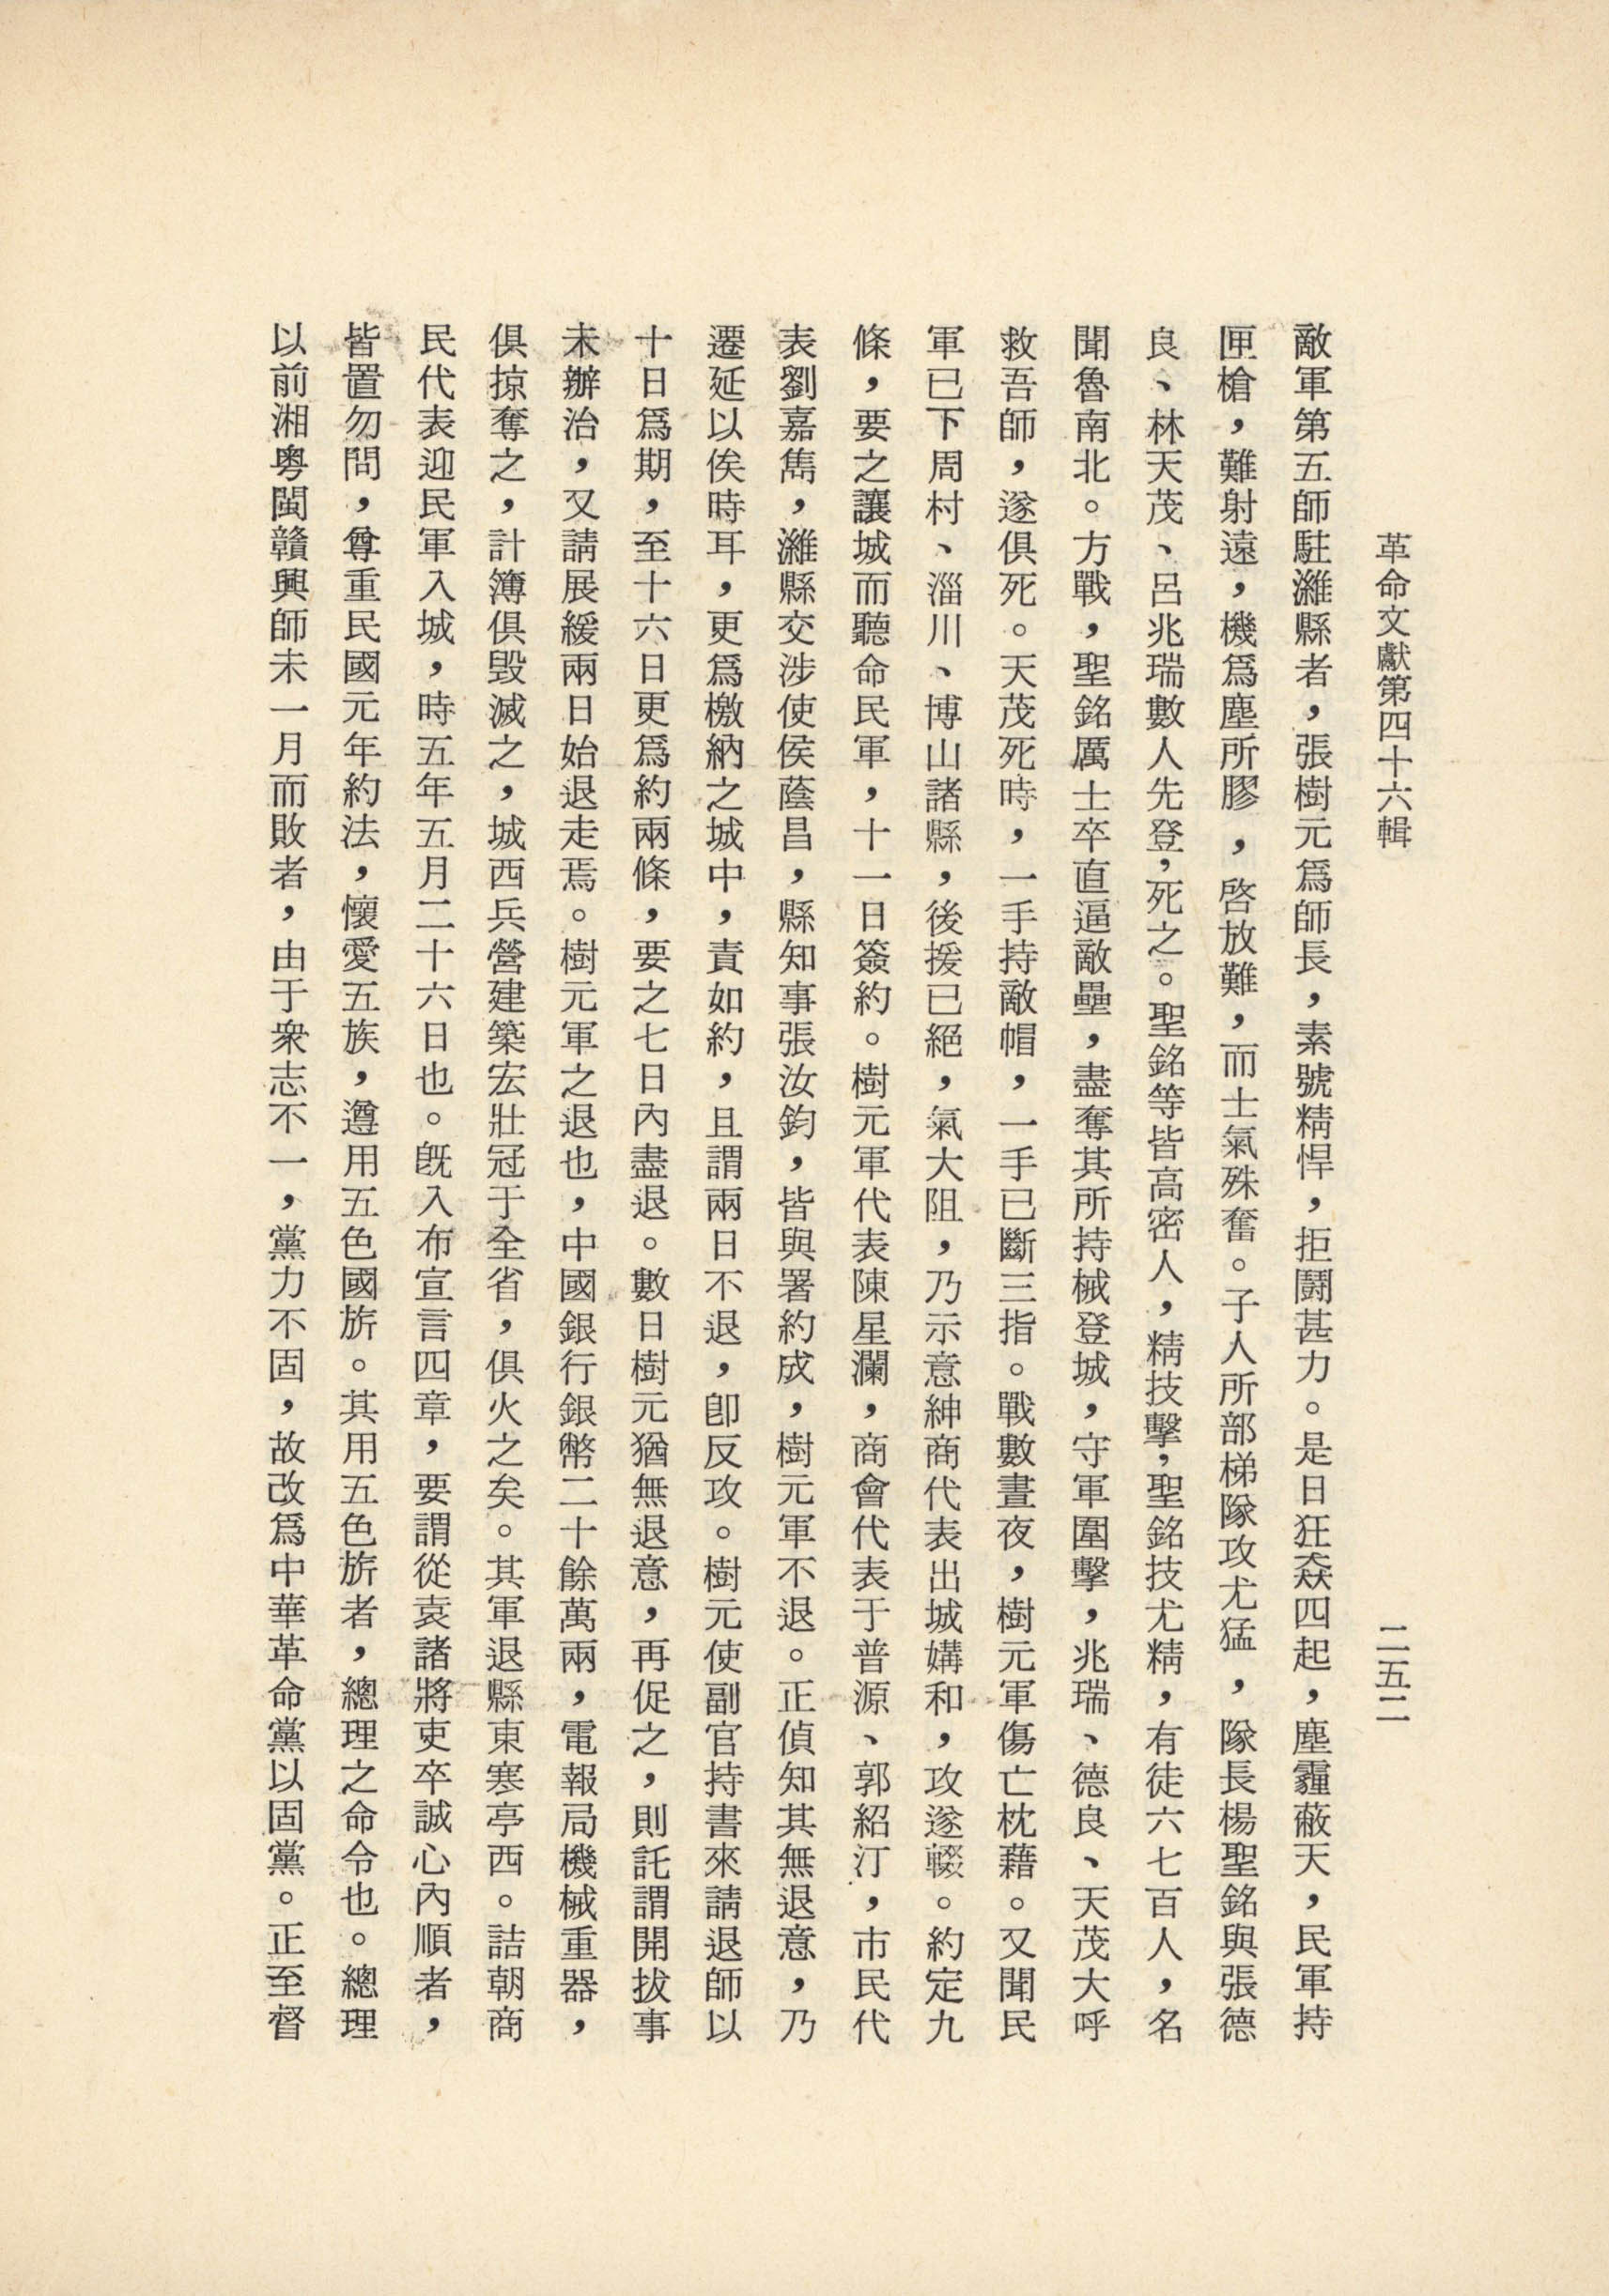 革命文獻第四十六輯
二五二
敵軍第五師駐濰縣者，張樹元爲師長，素號精悍，拒鬪甚力。是日狂猋四起，塵霾蔽天，民軍持
匣槍，難射遠，機爲塵所膠，啓放難，而士氣殊奮。子人所部梯隊攻尤猛，隊長楊聖銘與張德
良、林天茂、呂兆瑞數人先登，死之。聖銘等皆高密人，精技擊，聖銘技尤精，有徒六七百人，名
聞魯南北。方戰，聖銘厲士卒直逼敵壘，盡奪其所持械登城，守軍圍擊，兆瑞、德良、天茂大呼
救吾師，遂俱死。天茂死時，一手持敵帽，一手已斷三指。戰數晝夜，樹元軍傷亡枕藉。又聞民
軍已下周村、淄川、博山諸縣，後援已絕，氣大阻，乃示意紳商代表出城媾和，攻遂輟。約定九
條，要之讓城而聽命民軍，十一日簽約。樹元軍代表陳星瀾，商會代表于普源、郭紹汀，市民代
表劉嘉雋，濰縣交涉使侯蔭昌，縣知事張汝鈞，皆與署約成，樹元軍不退。正偵知其無退意，乃
遷延以俟時耳，更爲檄納之城中，責如約，且謂兩日不退，卽反攻。樹元使副官持書來請退師以
十日爲期，至十六日更爲約兩條，要之七日內盡退。數日樹元猶無退意，再促之，則託謂開拔事
未辦治，又請展緩兩日始退走焉。樹元軍之退也，中國銀行銀幣二十餘萬兩，電報局機械重器，
俱掠奪之，計簿俱毀滅之，城西兵營建築宏壯冠于全省，俱火之矣。其軍退縣東寒亭西。詰朝商
民代表迎民軍入城，時五年五月二十六日也。旣入布宣言四章，要謂從袁諸將吏卒誠心內順者，
皆置勿問，尊重民國元年約法，懷愛五族，遵用五色國旂。其用五色旂者，總理之命令也。總理
以前湘粵閩贛興師未一月而敗者，由于衆志不一，黨力不固，故改爲中華革命黨以固黨。正至督